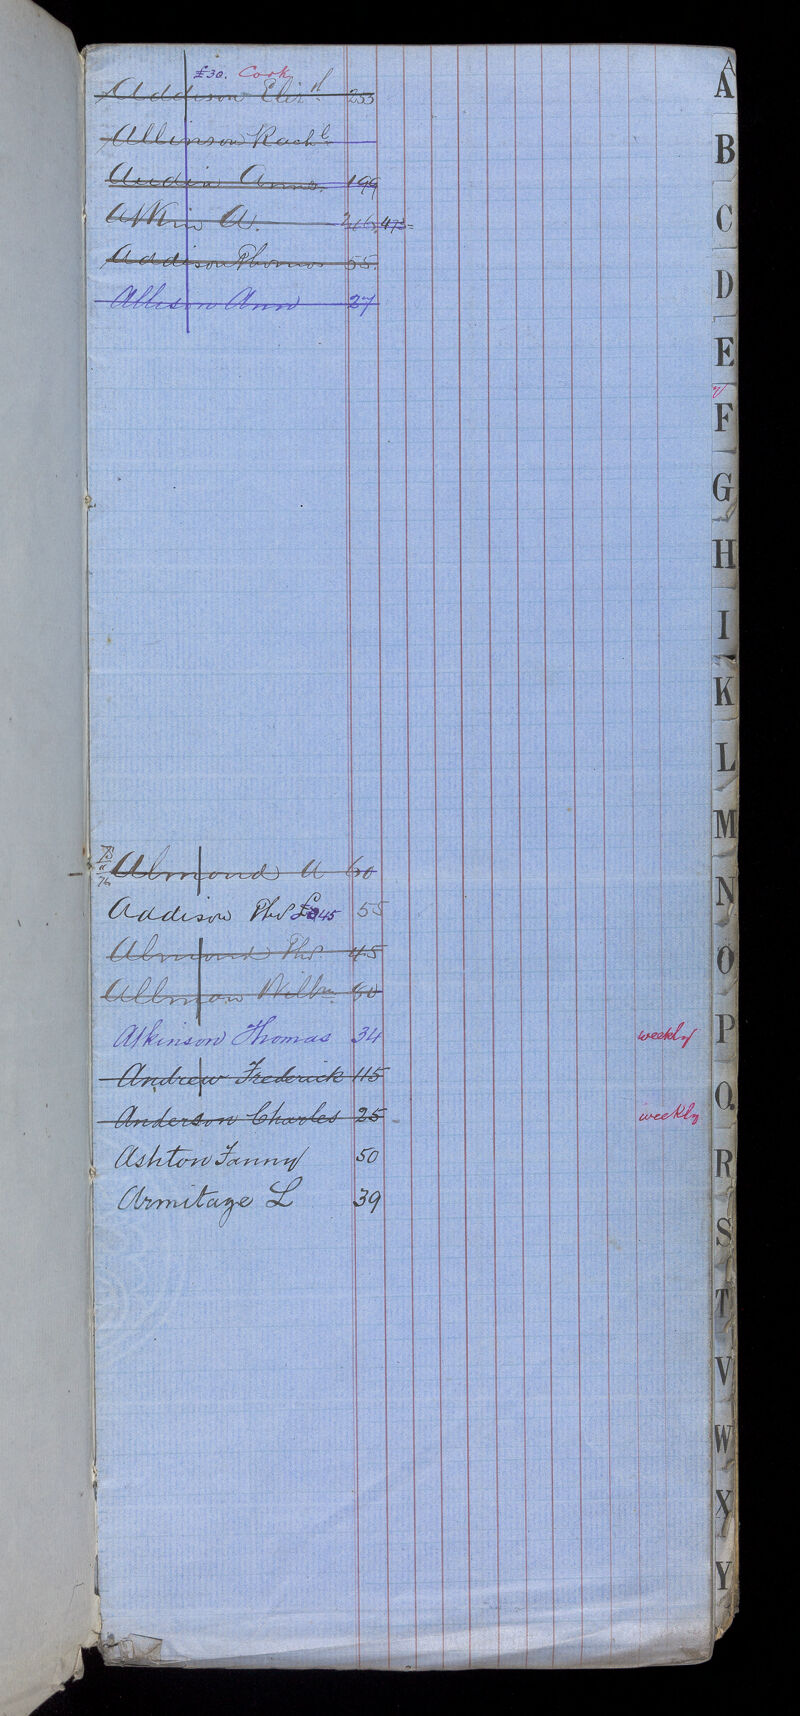 £30. Cook
Addison Eliz.h 255
Allinson Rach.l
Audin Anna. 199
Atkin A. 216, 473
Addison Thomas 55.
Allison Ann 27
Almond A 60
Addison Tho.s £45 55
Almond Tho.s 45
Allman Willm. 60
Atkinson Thomas 34 weekly
Andrew Frederick 115
Anderson Charles 25 weekly
Ashton Fanny 50
Armitage L 39
A
A
B
C
D
E
F
G
H
I
K
L
M
N
O
P
Q.
R
S
T
V
W
X
Y